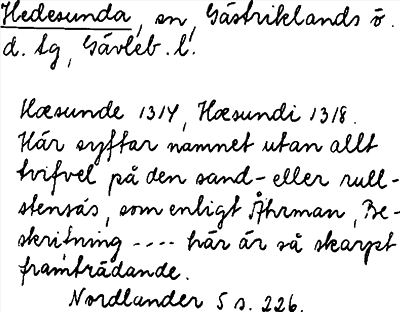 Hedesunda, sn, Gästriklands ö.
d. tg, Gävleb. l.
Hæsunde 1314, Hæsundi 1318.
Här syftar namnet utan allt
tvifvel på den sand- eller rull-
stensås, som enligt Åhrman, Be-
skrifning ---- här är så skarpt
framträdande.
Nordlander 5 s. 226.